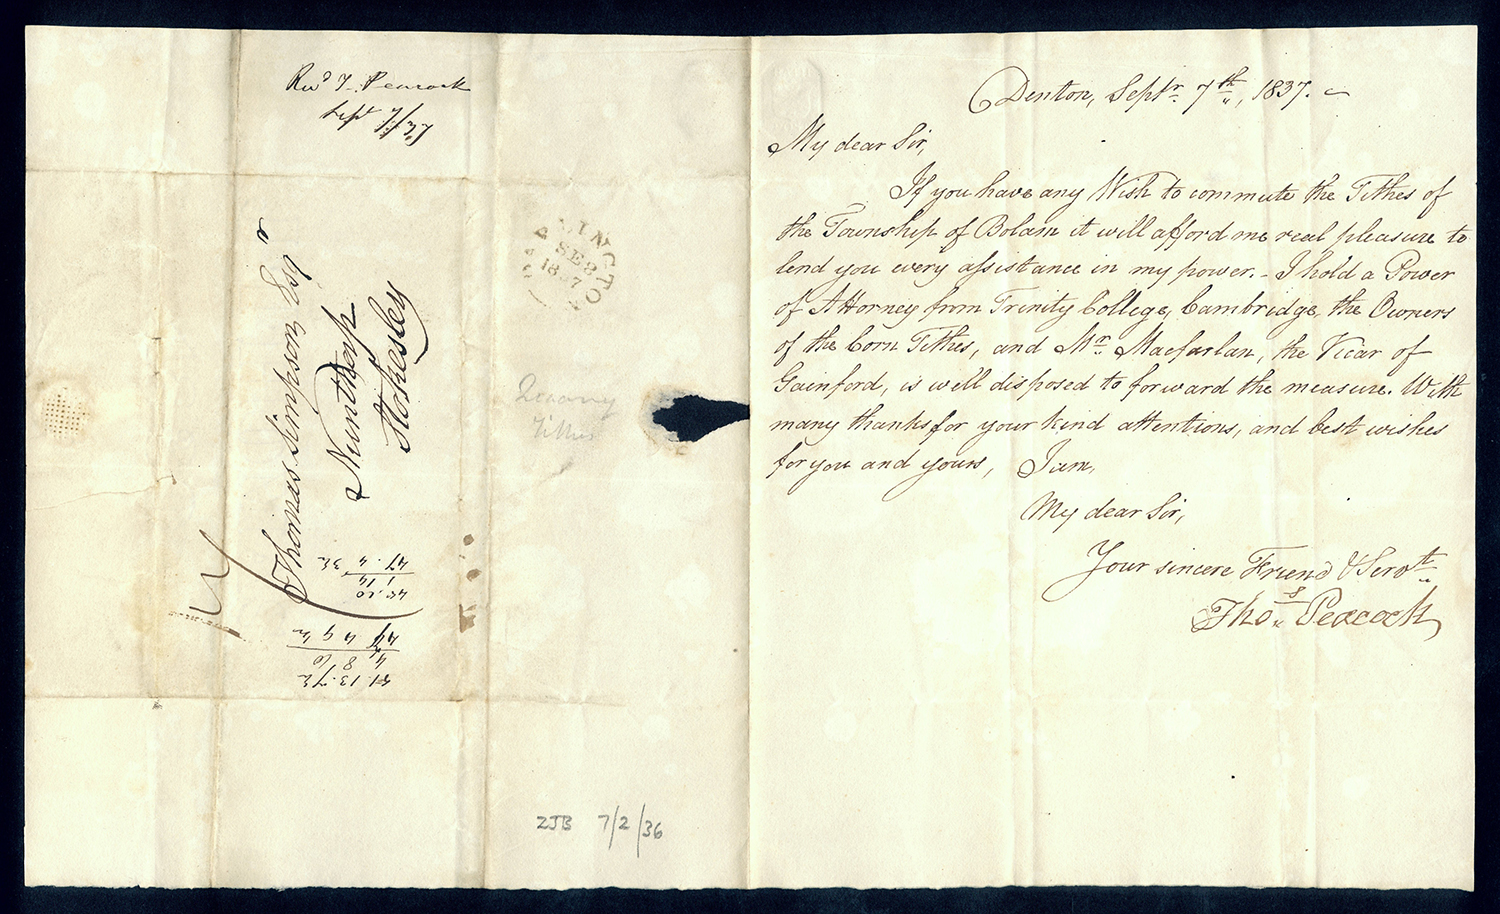 Revd T. Peacock
Sept 7/37
Thomas Simpson Esqr
Nunthorp
Stokesley
47.4 3½
1 14
45.10
47 4 9½
4 8 6
41.13.7½
DARLINGTON
SE 8
1837
Tithes
ZJB 7/2/36
Denton, Septr. 7th, 1837.
My dear Sir,
If you have any Wish to commute the Tithes of
the Township of Bolam it will afford me real pleasure to
lend you every assistance in my power. - I hold a Power
of Attorney from Trinity College, Cambridge, the Owners
of the Corn Tithes, and Mr. Macfarlan, the Vicar of
Gainford, is well disposed to forward the measure. With
many thanks for your kind attentions, and best wishes
for you and yours, I am,
My dear Sir,
Your sincere Friend & Servt
Thos. Peacock